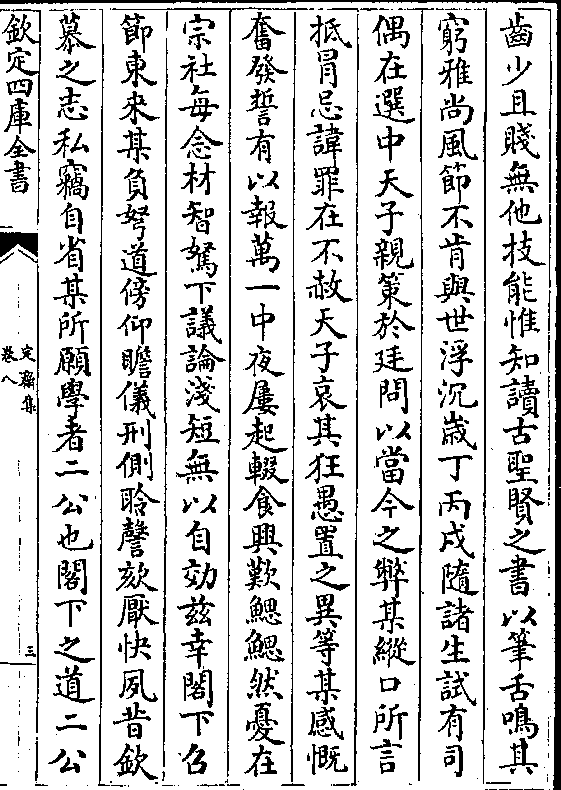 齒少且賤無他技能惟知讀古聖賢之書以筆舌鳴其
窮雅尚風節不肯與世浮沉歳丁丙戌隨諸生試有司
偶在選中天子親策於廷問以當今之弊某縱口所言
抵冐忌諱罪在不赦天子哀其狂愚置之異等某感慨
奮發誓有以報萬一中夜屢起輟食興歎鰓鰓然憂在
宗社每念材智駑下議論淺短無以自効兹幸閣下召
節東來某負弩道傍仰瞻儀刑側聆謦欬厭快夙昔欽
慕之志私竊自省某所願學者二公也閣下之道二公
欽定四庫全書
定齋集
卷八
三